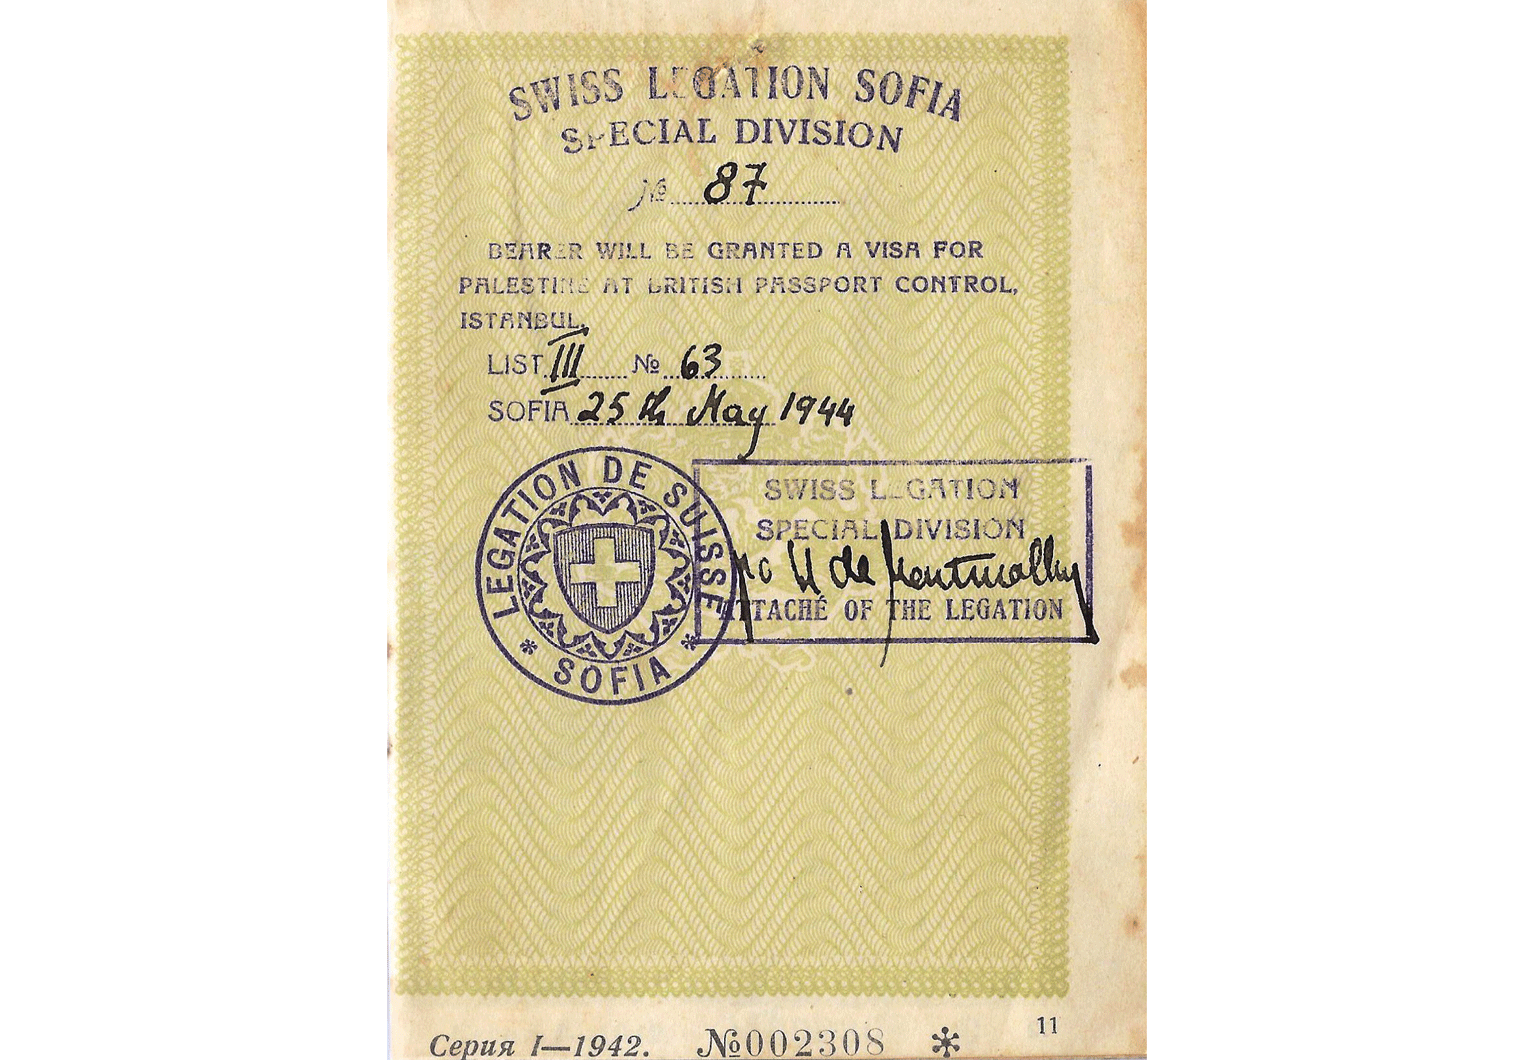 SWISS LEGATION SOFIA
SPECIAL DIVISION
№ 87
BEARER WILL BE GRANTED A VISA FOR
PALESTINE AT BRITISH PASSPORT CONTROL,
ISTANBUL.
LIST III № 63
SOFIA 25th May 1944
LEGATION DE SUISSE
* SOFIA *
SWISS LEGATION
SPECIAL DIVISION
ATTACHÉ OF THE LEGATION
11
Серия I—1942. №002308 *